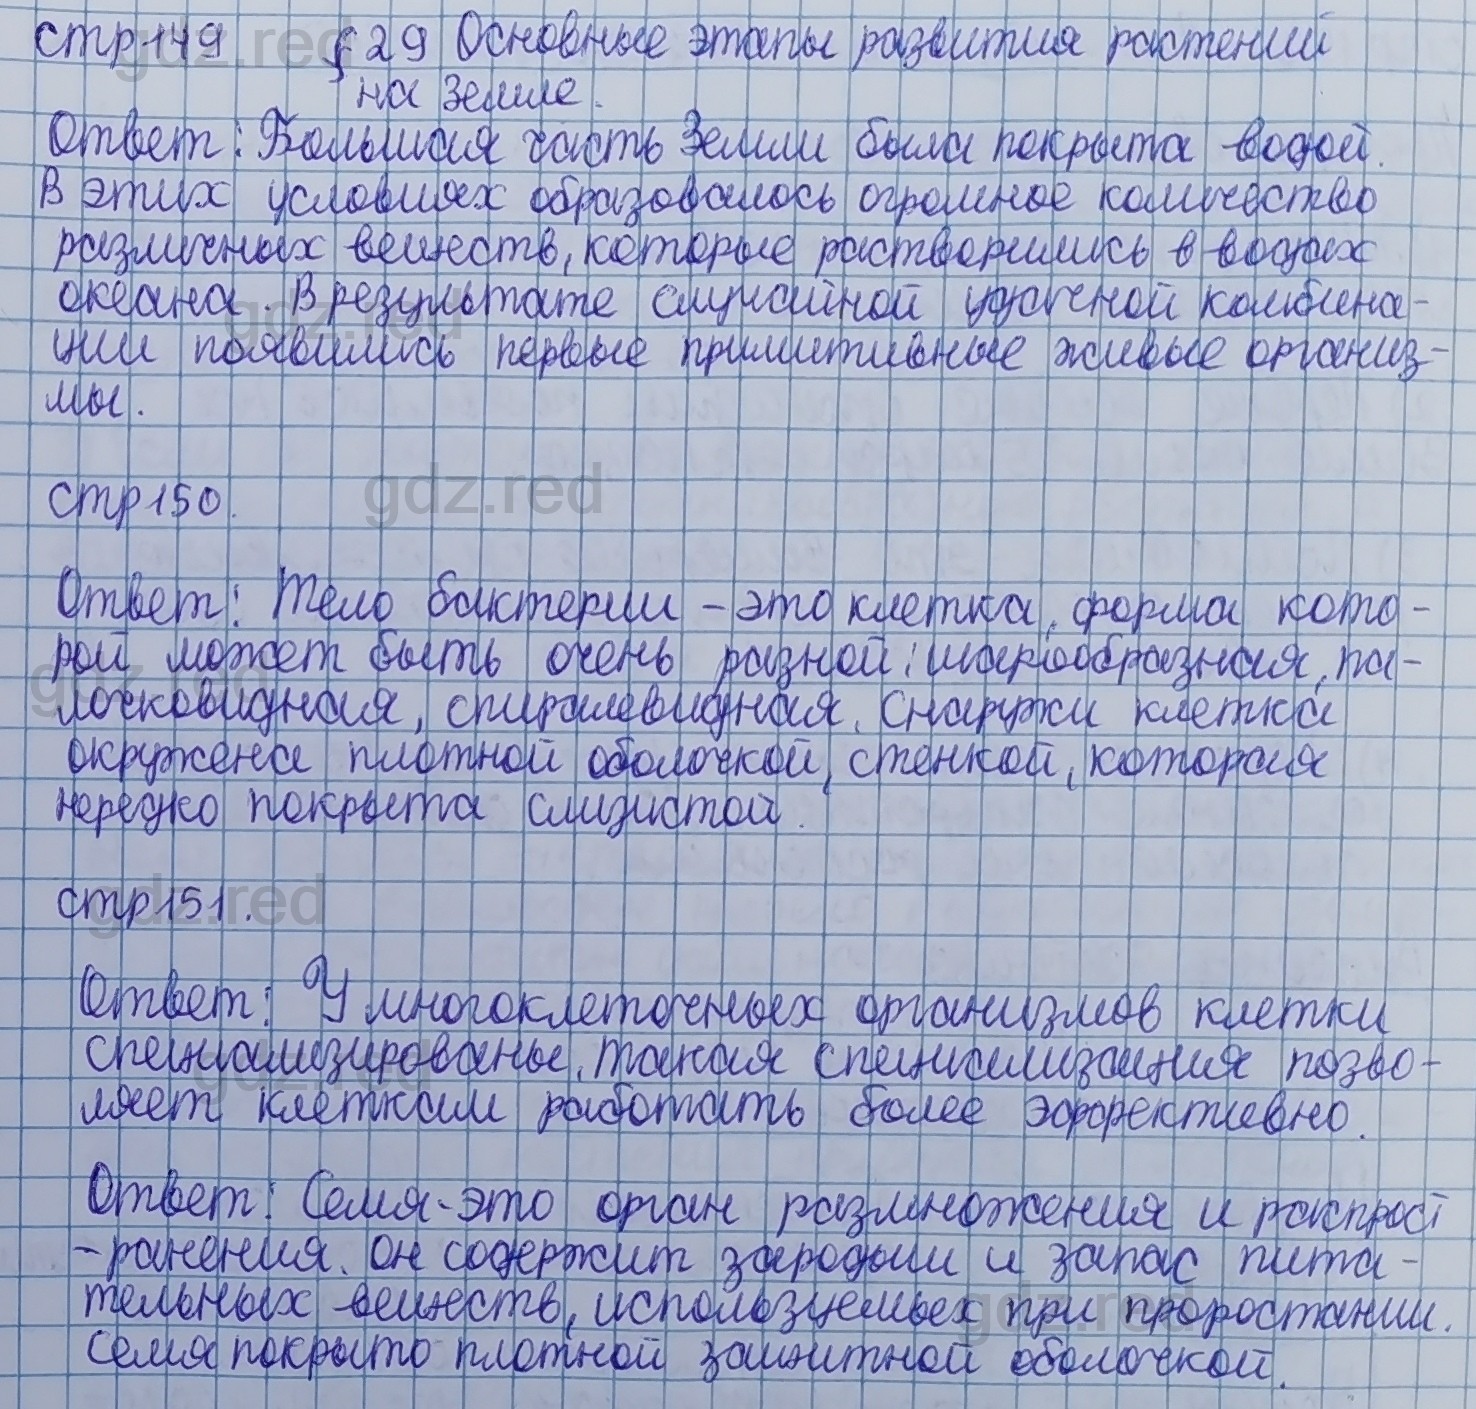 стр 149 § 29 Основные этапы развития растений
на Земле.
Ответ: Большая часть Земли была покрыта водой.
В этих условиях образовалось огромное количество
различных веществ, которые растворились в водах
океана. В результате случайной удачной комбина-
ции появились первые примитивные живые организ-
мы.
стр 150.
Ответ: Тело бактерии - это клетка, форма кото-
рой может быть очень разной: шарообразная, па-
лочковидная, спиралевидная. Снаружи клетка
окружена плотной оболочкой, стенкой, которая
нередко покрыта слизистой.
стр 151.
Ответ: У многоклеточных организмов клетки
специализированы. Такая специализация позво-
ляет клеткам работать более эффективно.
Ответ: Семя - это орган размножения и распрост
-ранения. Он содержит зародыш и запас пита-
тельных веществ, используемых при проростании.
Семя покрыто плотной защитной оболочкой.
gdz.red
gdz.red
gdz.red
gdz.red
gdz.red
gdz.red
gdz.red